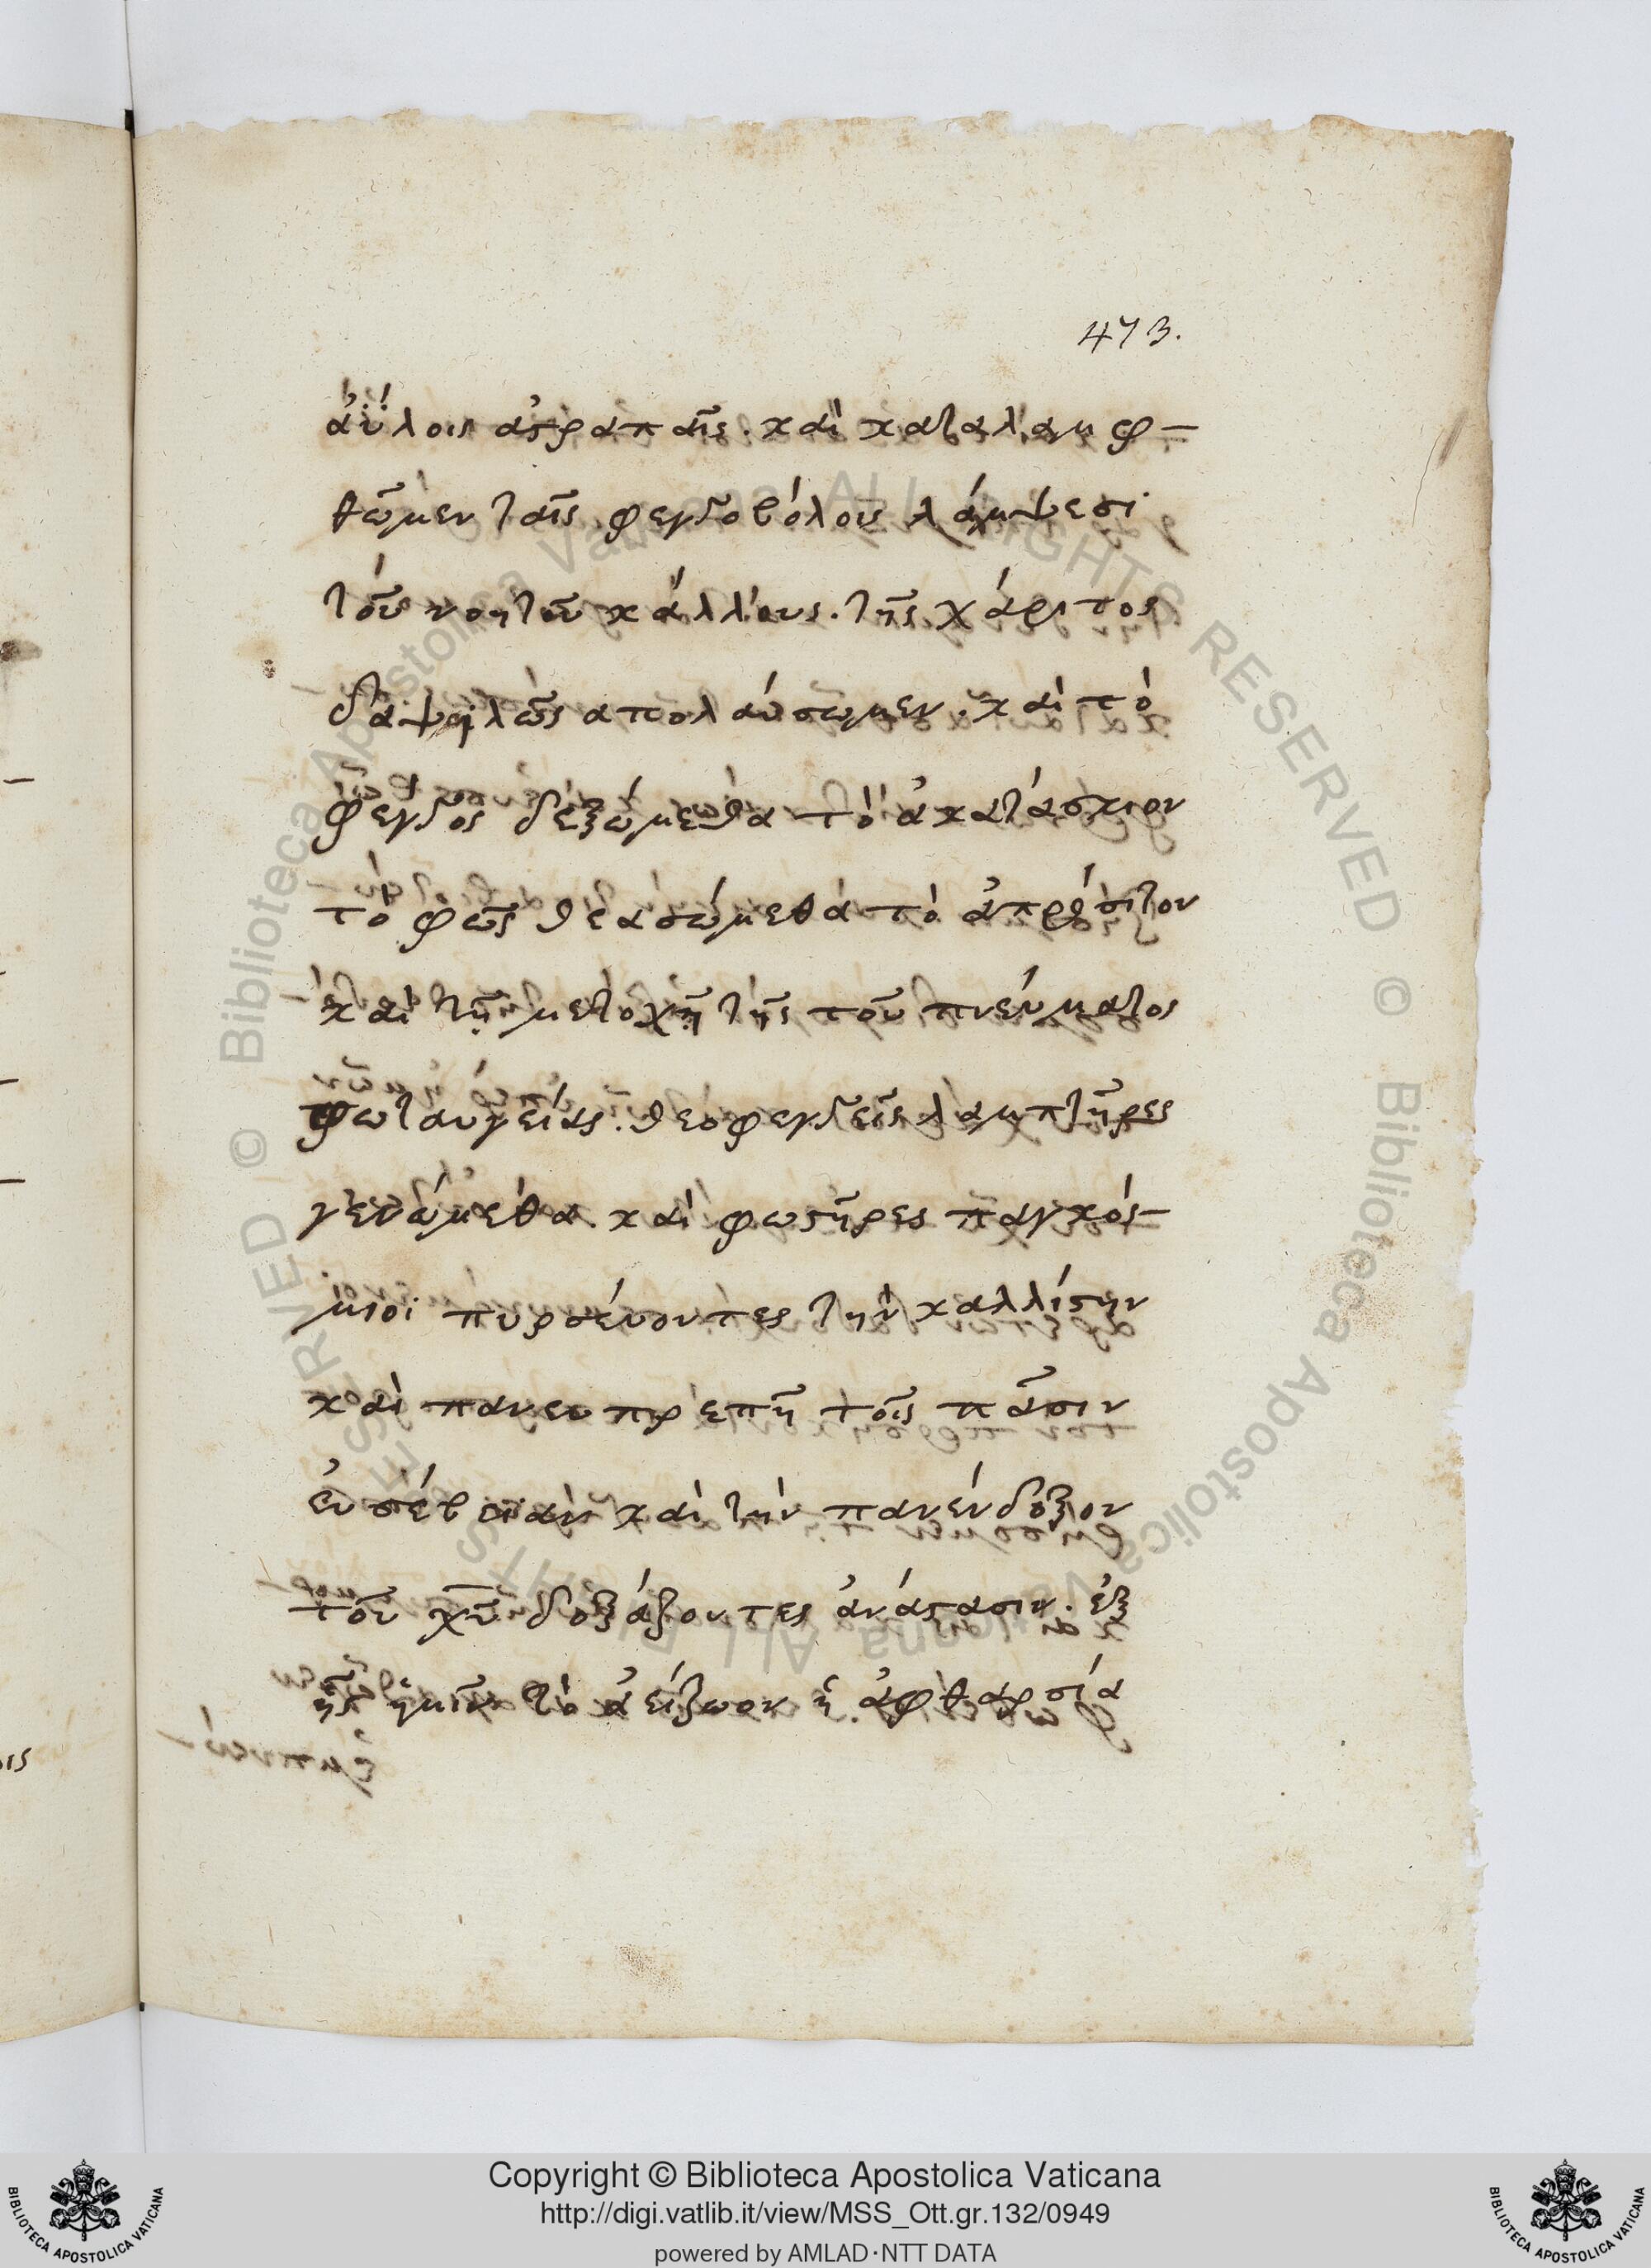 473.
ἀΰλοις ἀστραπαῖς. καὶ καταλαμφ-
θῶμεν ταῖς φεγγοβόλοις λάμψεσι
τοῦ νοητοῦ κάλλους. τῆς χάριτος
δαψιλῶς απολαύσωμεν. καὶ τὸ
φέγγος δεξώμεθα τὸ ἀκατάσκιον
τὸ φῶς θεασώμεθα τὸ ἀπρόσιτον
καὶ τῇ μετοχῇ τῆς τοῦ πνεύματος
φωταυγείας. θεοφεγγεῖς λαμπτῆρες
γενώμεθα. καὶ φωστῆρες παγκόσ-
μιοι πυρσέυοντες τὴν καλλίστην
καὶ πανευπρεπῆ τοῖς πᾶσιν
ἐυσέβειαν καὶ τὴν πανένδοξον
τοῦ χῦ δοξάζοντες ἀνάστασιν. ἐξ
ἧς ἡμῖν τὸ ἀείζωον ἡ ἀφθαρσία
© Biblioteca Apostolica Vaticana ALL RIGHTS RESERVED © Biblioteca Apostolica Vaticana ALL RIGHTS RESERVED
Copyright © Biblioteca Apostolica Vaticana
http://digi.vatlib.it/view/MSS_Ott.gr.132/0949
powered by AMLAD·NTT DATA
BIBLIOTECA APOSTOLICA VATICANA
BIBLIOTECA APOSTOLICA VATICANA